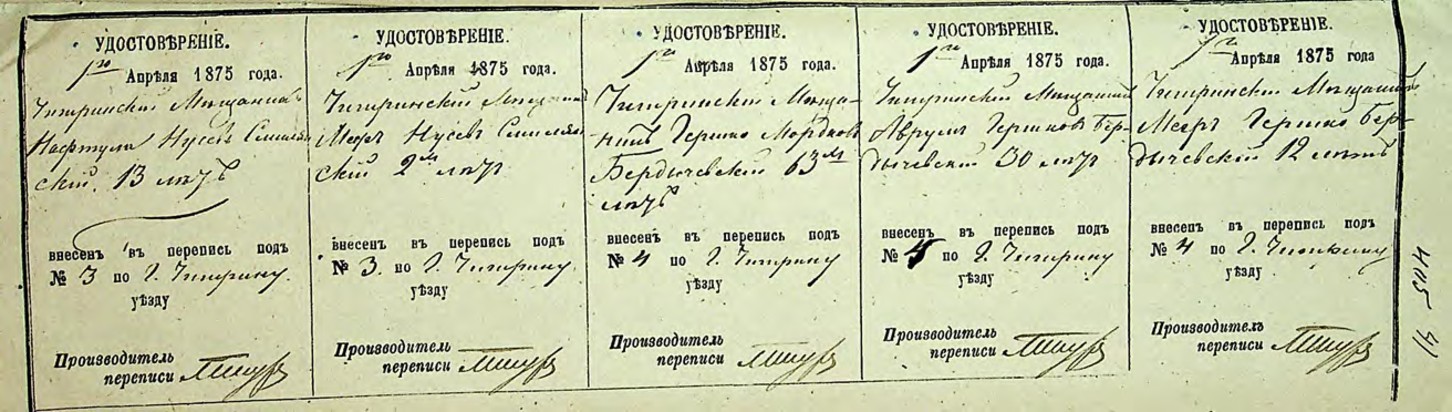 УДОСТОВѢРЕНІЕ.
1го Апрѣля 1875 года.
Чигиринскій Мѣщанинъ
Нафтула Нусевъ Смилян-
скій. 13 лѣтъ
внесенъ въ перепись подъ
№ 3 по г. Чигирину
уѣзду
Производитель
переписи
УДОСТОВѢРЕНІЕ.
1го Апрѣля 1875 года.
Чигиринскій Мѣщанинъ
Мееръ Нусевъ Смилян-
скій 2хъ лѣтъ
внесенъ въ перепись подъ
№ 3. по г. Чигирину
уѣзду
Производитель
переписи
УДОСТОВѢРЕНІЕ.
1го Апрѣля 1875 года.
Чигиринскій Мѣща-
нинъ Гершко Мордковъ
Бердичевскій 63хъ
лѣтъ
внесенъ въ перепись подъ
№ 4 по г. Чигирину
уѣзду
Производитель
переписи
УДОСТОВѢРЕНІЕ.
1го Апрѣля 1875 года.
Чигиринскій Мѣщанинъ
Аврумъ Гершковъ Бер-
дичевскій 30 лѣтъ
внесенъ въ перепись подъ
№ 4 по г. Чигирину
уѣзду
Производитель
переписи
УДОСТОВѢРЕНІЕ.
1го Апрѣля 1875 года
Чигиринскій Мѣщанинъ
Мееръ Гершко Бер-
дичевскій 12 лѣтъ
внесенъ въ перепись подъ
№ 4 по г. Чигирину
уѣзду
Производитель
переписи